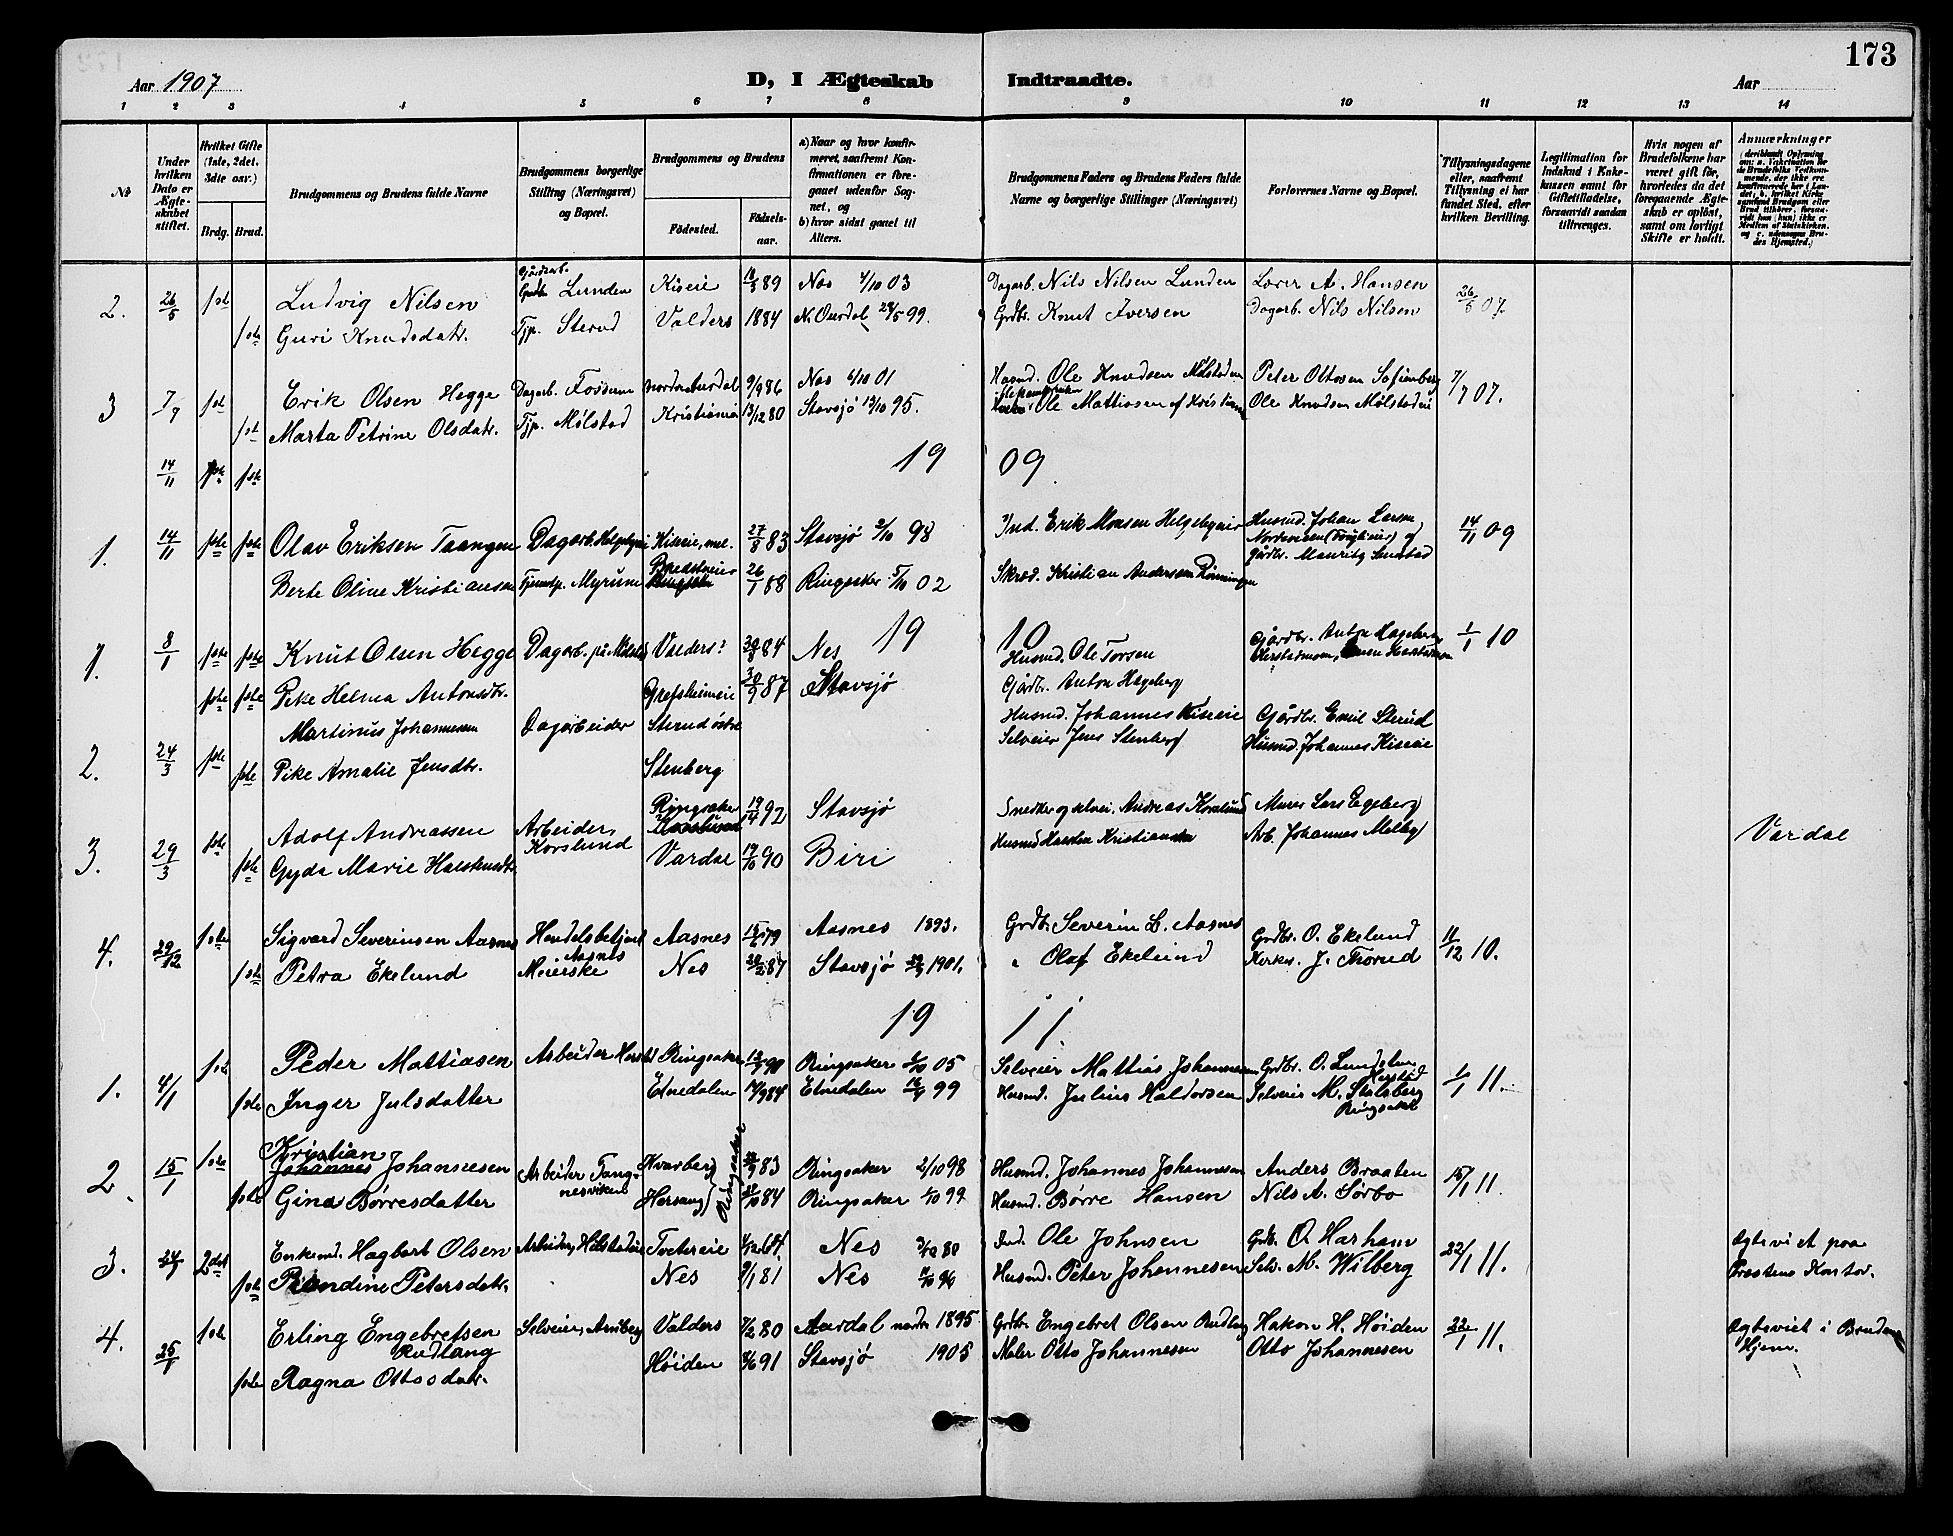 173
Aar 1907
D, I Ægteskab Indtraadte.
Aar
1 2 3 4 5 6 7 8 9 10 11 12 13 14
No
Under hvilken Dato er Ægteskabet stiftet.
Hvilket Gifte (1ste, 2det, 3die osv.)
Brdg. Brud.
Brudgommens og Brudens fulde Navne
Brudgommens borgerlige Stilling (Næringsvei) og Bopæl.
Brudgommens og Brudens
Födested.
Födselsaar.
a) Naar og hvor konfirmeret, saafremt Konfirmationen er foregaaet udenfor Sognet, og
b) hvor sidst gaaet til Alters.
Brudgommens Faders og Brudens Faders fulde Navne og borgerlige Stillinger (Næringsvei)
Forlovernes Navne og Bopæl.
Tillysningsdagene eller, saafremt Tillysning ei har fundet Sted, efter hvilken Bevilling.
Legitimation for Indskud i Enkekassen samt for Giftetilladelse, forsaavidt saadan tiltrænges.
Hvis nogen af Brudefolkene har været gift för, hvorledes da det foregaaende Ægteskab er oplöst, samt om lovligt Skifte er holdt.
Anmærkninger
2. 26/5 1ste Ludvig Nilsen Gårdarb. Lunden Kiseie 89 Nes 4/10 03 Dagarb. Nils Nilsen Lunden Lærer A. Hansen 26/5 07.
1ste Guri Knudsdatr. Tjp. Sterud Valders 1884 N. Aurdal 28/5 99. Grdbr. Knut Iversen Dagarb. Nils Nilsen
3 7/7 1ste Erik Olsen Hegge Dagarb. Fossum Nordre Aurdal 9/9 86 Nes 6/10 01 Husmd. Ole Knudsen Mølstadeie Peter Ottosen Sofienberg 7/7 07.
1ste Marta Petrine Olsdatr. Tjp. Mølstad Kristiania 13/12 80 Stavsjø 13/10 95. Ole Mattiasen af Kristiania Ole Knudsen Mølstadeie
14/11 1ste 1ste
1909
1. 14/11 1ste 1ste Olav Eriksen Taangen Dagarb. Helgebyeie Kiseie, 27/8 83 Stavsjø 2/10 98 Ind. Erik Monsen Helgebyeie Husmd. Johan Larsen 14/11 09
Nordvensen og
Gårdbr. Mauritz Sunstad
Berte Oline Kristiansen Tjenestp. Myrum 26/1 88 Ringsaker 5/10 02 Skræd. Kristian Andersen Rønningen
1910
1. 8/1 1ste 1ste Knut Olsen Hegge Dagarb. på Valders? 84 Nes Husmd. Ole Torsen Gårdbr. Anton Hageberg 1/1 10
1ste 1ste Pike Helma Antonsdtr. Grefsheimeie 30/9 87 Stavsjø Gårdbr. Anton Hageberg
2. 24/3 1ste Martinus Johannesen Dagarbeider Sterud østre Husmd. Johannes Kiseeie Gårdbr. Emil Sterud
1ste Pike Amalie Jensdtr. Stenberg Selveier Jens Stenberg Husmd. Johannes Kiseeie
3. 29/3 1ste Adolf Andreassen Arbeider, Korslund Ringsaker 92 Stavsjø Snedker og selvei. Andreas Korslund Murer Lars Egeberg Vardal
1ste Gyda Marie Halstensdtr. Vardal 19/10 90 Biri Husmd Halsten Kristiansen Arb. Johannes Melby
4. 29/12 1ste Sigvard Severinsen Aasnes Handelsbetjent Aasnes Aasnes 79 Aasnes 1893. Grdbr. Severin L. Aasnes Grdbr. O. Ekelund 11/12 10.
1ste Petra Ekelund Meierske Nes 87 Stavsjø 1901. " Olaf Ekelund Kirkes. J. Trorud
1911.
1. 4/1 1ste Peder Mattiasen Arbeider Ringsaker 90 Ringsaker 05 Selveier Mattias Johannesen Grdbr. O. Lundsten Herstad 1/1 11.
1ste Inger Julsdatter Etnedalen 84 Etnedalen 99 Husmd. Julius Haldorsen Selveier M. Stalsberg Ringsaker
2. 15/1 1ste Kristian Johannes Johannesen Arbeider Tangnesviken Kvarberg 83 Ringsaker 2/10 98 Husmd. Johannes Johannesen Anders Braaten 15/1 11.
1ste Gina Børresdatter Hersaug Ringsaker 84 Ringsaker 1/10 99 Husmd. Børre Hansen Nils A. Sørbo
3. 2det Enkemd. Hagbart Olsen Arbeider, Holstadeie Tveitereie 64. Nes 3/10 80 Ind. Ole Johnsen Grdb. O. Harham 22/1 11. Ægteviet paa
1ste Randine Petersdatr. Nes 9/1 81 Nes 11/10 96 Husmd. Peter Johannesen Selv. M. Wilberg Præstens Kontor.
4. 25/1 1ste Erling Engebretsen Rudlang Selveier, Arnberg Valders 7/2 80 Aurdal nordre 1895 Grdbr. Engebret Olsen Rudlang Hakon H. Høiden 22/1 11. Ægteviet i Brudens
1ste Ragna Ottosdatr. Høiden 91 Stavsjø 1905 Maler Otto Johannesen Otto Johannesen Hjem.